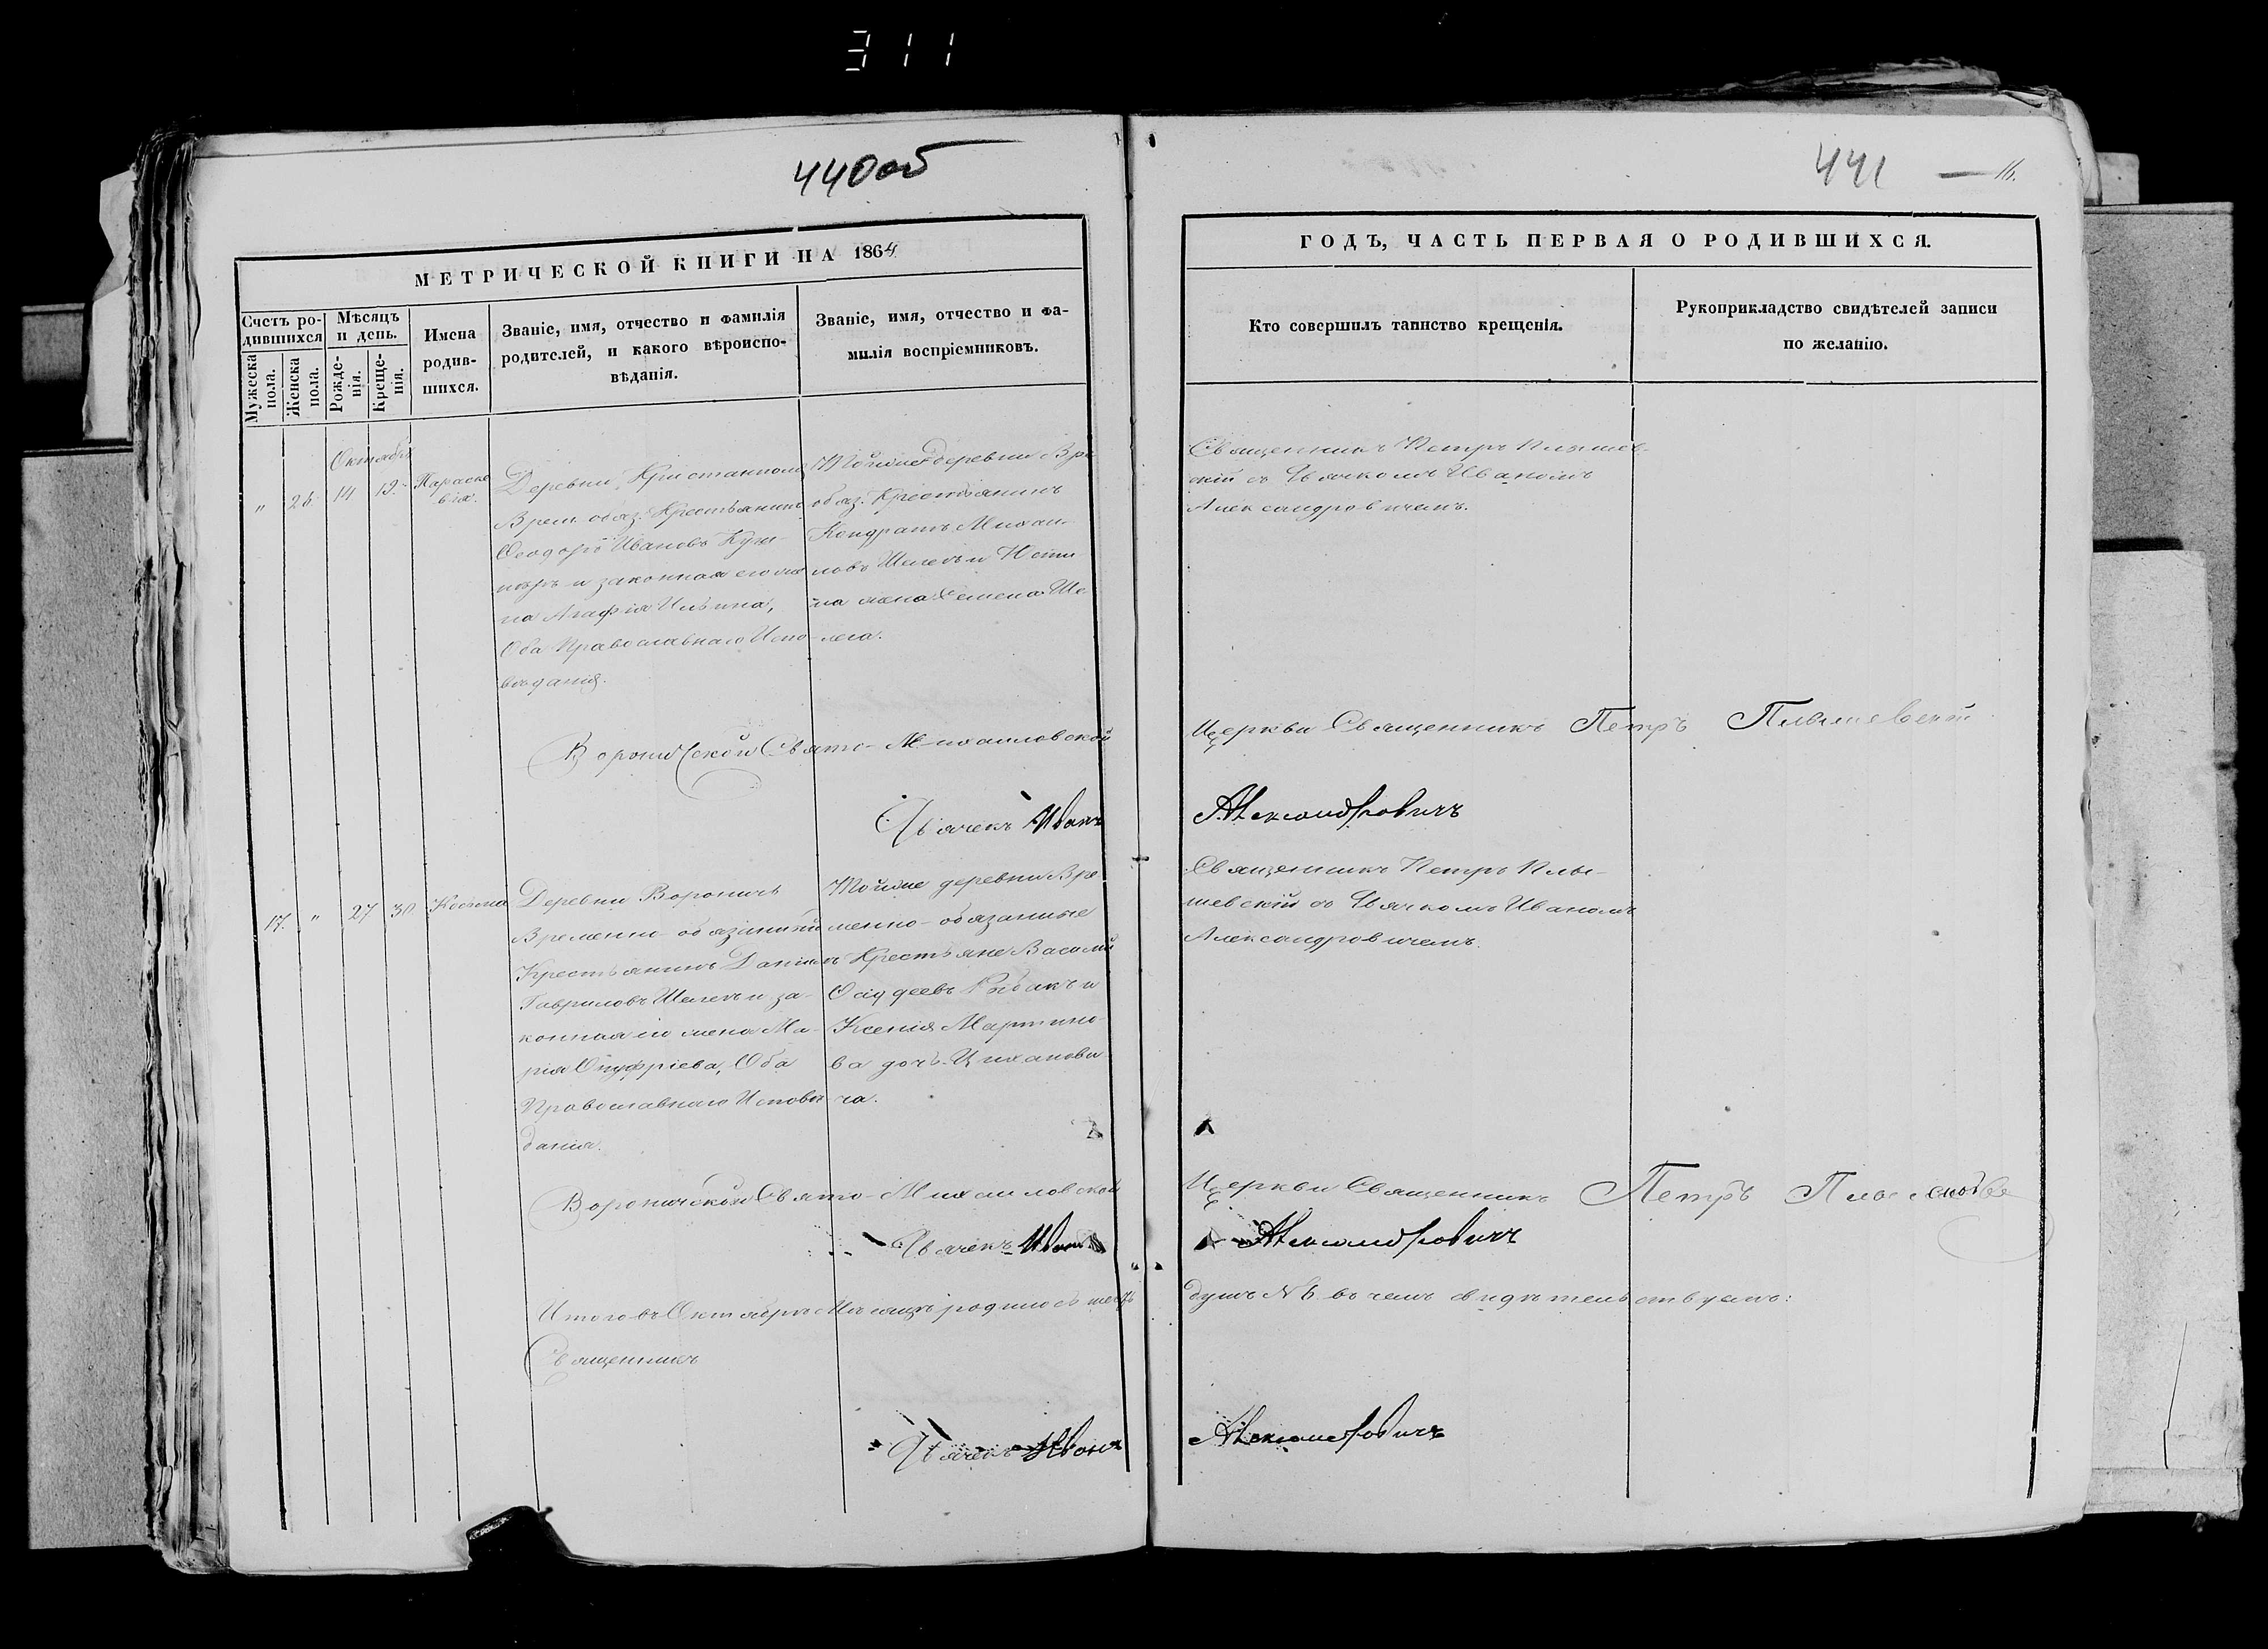 311
440об
441 — 16.
МЕТРИЧЕСКОЙ КНИГИ НА 1864
ГОДЪ, ЧАСТЬ ПЕРВАЯ О РОДИВШИХСЯ.
Счетъ ро-
дившихся
Мужеска пола.
Женска пола.
Мѣсяцъ
и день.
Рожде-
нія.
Креще-
нія.
Имена
родив-
шихся.
Званіе, имя, отчество и фамилія
родителей, и какого вѣроиспо-
вѣданія.
Званіе, имя, отчество и фа-
милія воспріемниковъ.
Кто совершилъ таинство крещенія.
Рукоприкладство свидѣтелей записи
по желанію.
Октября
" 14
Параске
вія.
Деревни
Врем. обяз. Крестьянинъ
Ѳеодоръ Ивановъ
и законная его же
на Агафія Ильина,
Оба Православнаго Испо-
вѣданія.
Тойже деревни Вре
обяз. Крестьянинъ
Кондратъ Михаи-
ловъ Шелегъ и
на жена Семена Ше
лега.
Священникъ Петръ Плышев-
скій съ Дьячкомъ Иваномъ
Александровичемъ.
Вороничской Свято-Михаиловской
Церкви Священникъ Петръ Плышевскій
Дьячекъ Иванъ
Александровичъ
17. " 27 30 Косьма
Деревни Вороничъ
Временно-обязанный
Крестьянинъ Даніилъ
Гавриловъ Шелегъ и за-
конная его жена Ма-
рія Онуфріева, Оба
Православнаго Исповѣ
данія.
Тойже деревни Вре
менно-обязанные
Крестьяне Василій
Фаддеевъ Рыбакъ и
Ксенія Мартино-
ва дочь Циханови
ча.
Священникъ Петръ Плы-
шевскій съ Дьячкомъ Иваномъ
Александровичемъ.
Вороничской Свято-Михаиловской
Церкви Священникъ Петръ
Дьячекъ Иванъ
Александровичъ
Итого въ Октябрѣ Мѣсяцѣ родилось шесть
душъ № 6. въ чемъ свидѣтельствуемъ:
Священникъ
Дьячекъ Иванъ
Александровичъ